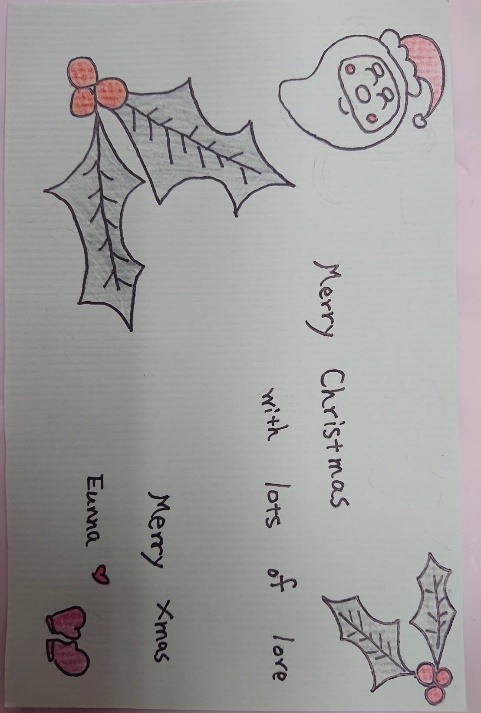 Merry Christmas
with lots of love
Merry Xmas
Eunna